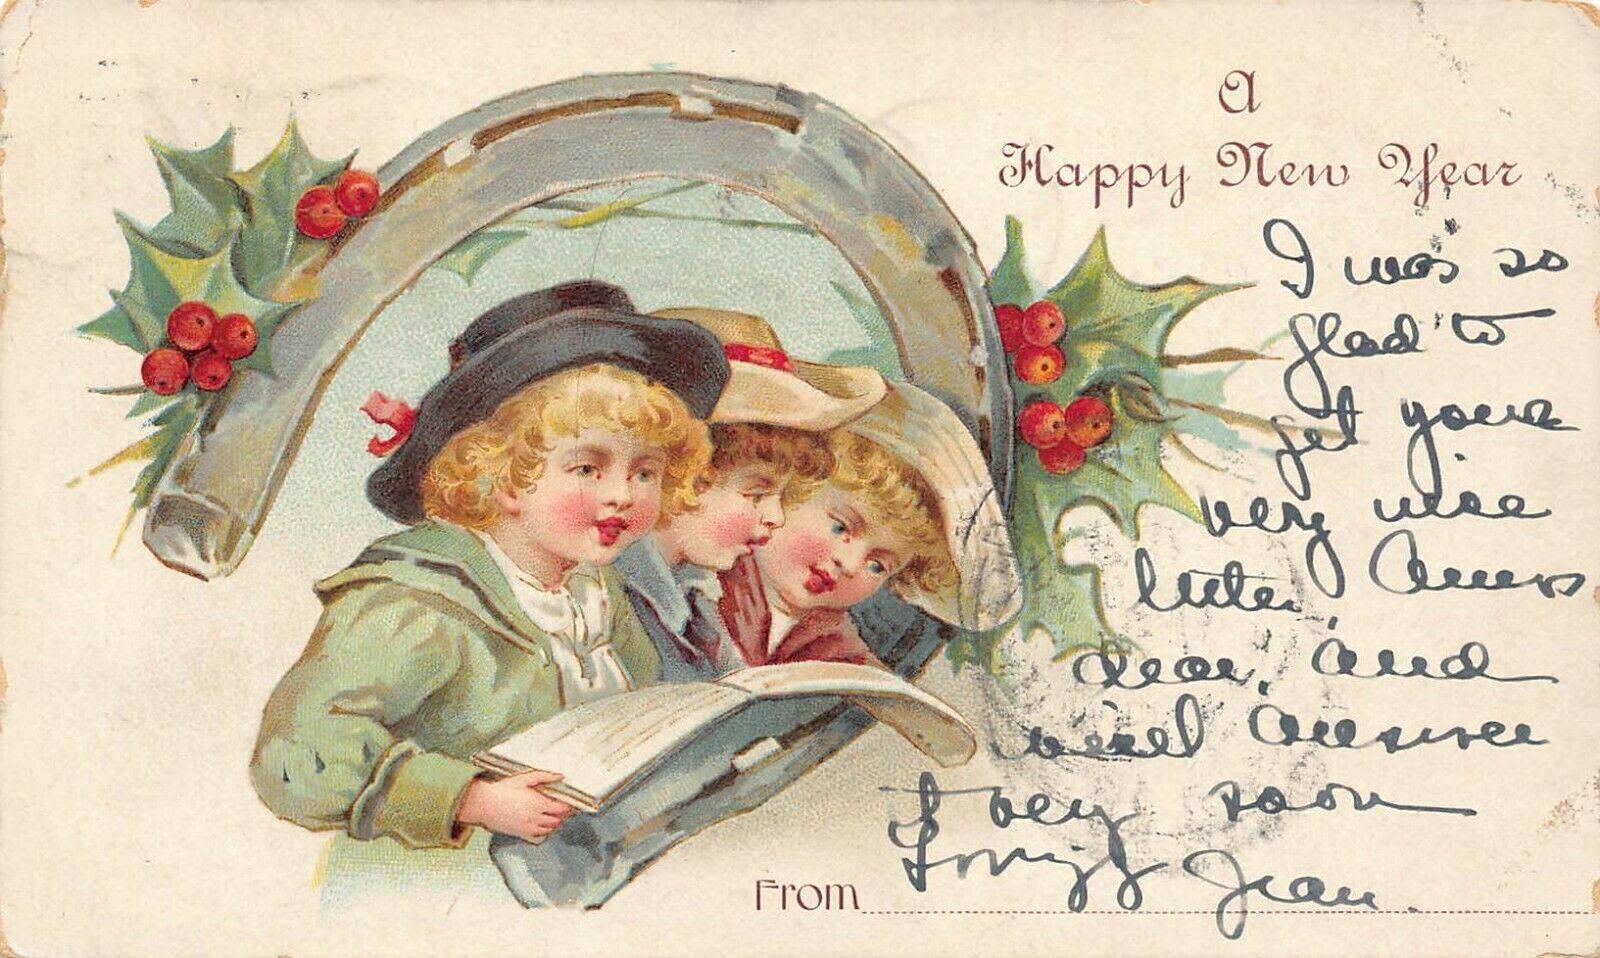 A
Happy New Year
I was so
glad to
get your
very nice
letter,
dear, and
will answer
very soon
Lovingly Jean.
From